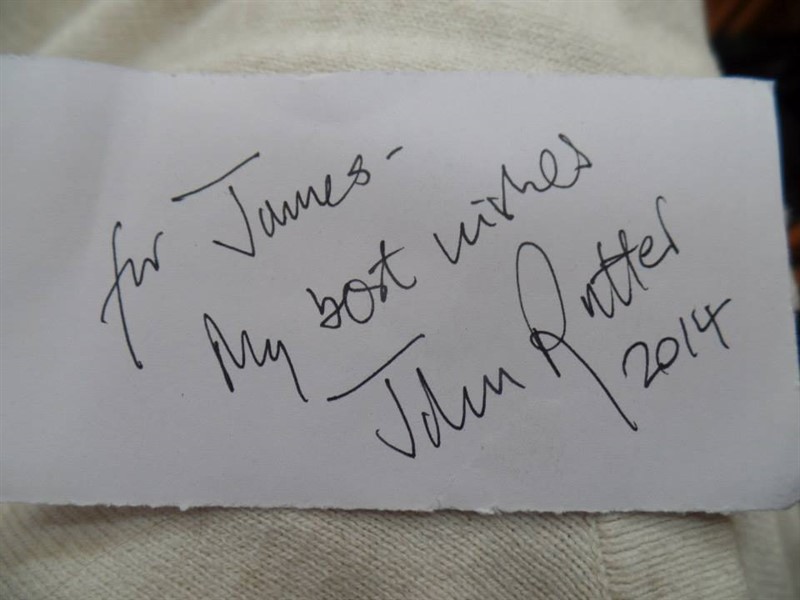 for James-
My best wishes
John Rutter
2014